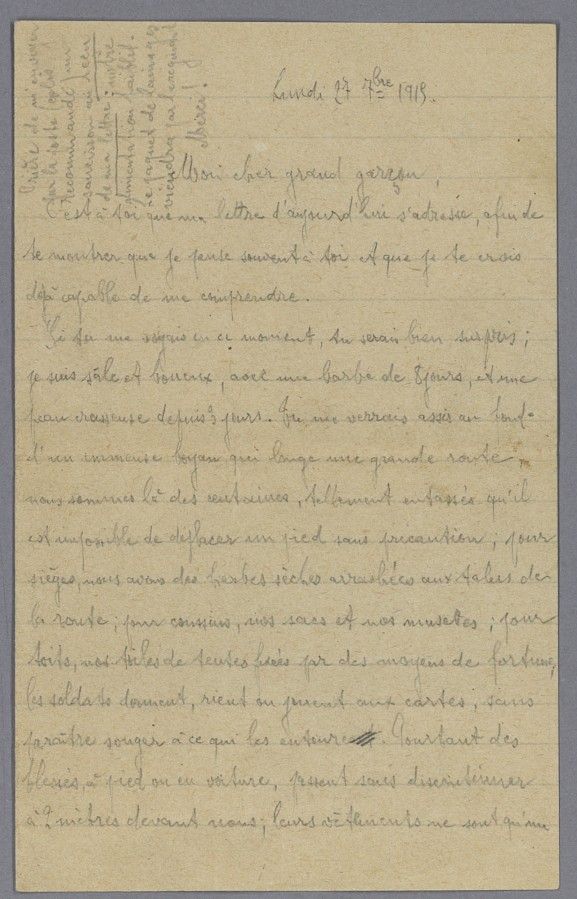 Prière de m'envoyer
sur la poste
Recommandé un
saucisson au lieu
de ma lettre; notre
alimentation faiblit.
Le paquet de lainages
viendra
Merci!
Lundi 27 7bre 1915.
Mon cher grand garçon,
C'est à toi que ma lettre d'aujourd'hui s'adresse, afin de
te montrer que je pense souvent à toi et que je te crois
déjà capable de me comprendre.
Si tu me voyais en ce moment, tu serais bien surpris;
je suis sâle et boueux, avec une barbe de 8 jours, et une
peau crasseuse depuis 3 jours. Tu me verrais assis au fond
d'un immense boyau qui longe une grande route,
nous sommes là des centaines, tellement entassés qu'il
est impossible de déplacer un pied sans précaution; pour
sièges, nous avons des herbes sèches arrachées aux talus de
la route; pour coussins, nos sacs et nos musettes; pour
toits, nos toiles de tentes fixées par des moyens de fortune,
les soldats dorment, rient ou jouent aux cartes, sans
paraître songer à ce qui les entoure. Pourtant des
blessés, à pied ou en voiture, passent sans discontinuer
à 2 mètres devant nous; leurs vêtements ne sont qu'un